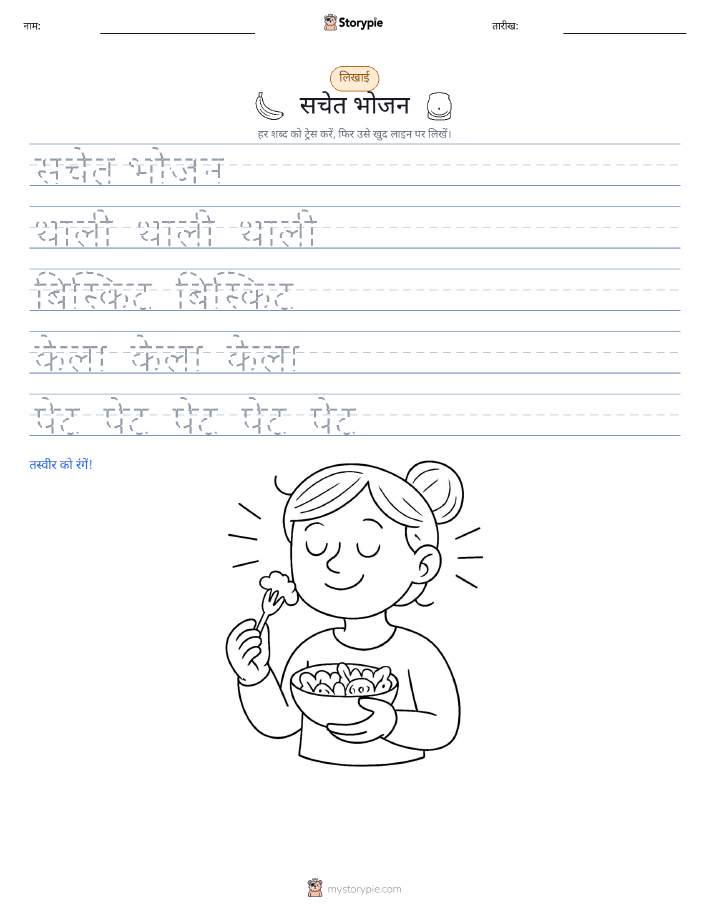 नाम:
Storypie
तारीख:
लिखाई
सचेत भोजन
हर शब्द को ट्रेस करें, फिर उसे खुद लाइन पर लिखें।
सचेत भोजन
थाली थाली थाली
बिस्किट बिस्किट
केला केला केला
पेट पेट पेट पेट पेट
तस्वीर को रंगें!
mystorypie.com